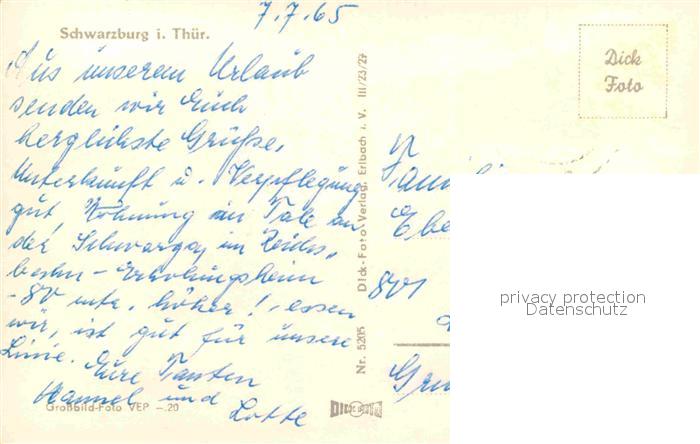 7.7.65
Schwarzburg i. Thür.
Aus unserem Urlaub
senden wir Euch
herzlichste Grüße,
Unterkunft u. Verpflegung
gut, Wohnung im Tale an
der Schwarza, im Reichs-
bahn-Erholungsheim
-80 mtr. höher!, essen
wir, ist gut für unsere
Linie. Eure Tanten
Hannel und
Lotte
Großbild-Foto VEP -.20
Nr. 5205 Dick-Foto-Verlag, Erlbach i. V. III/23/27
Dick
Foto
Famili
Ebe
801
Gru
privacy protection
Datenschutz